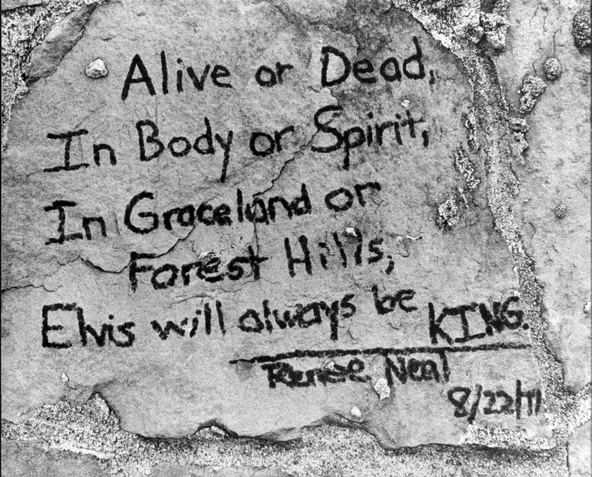 Alive or Dead,
In Body or Spirit,
In Graceland or
Forest Hills,
Elvis will always be KING.
Renee Neal
8/22/11